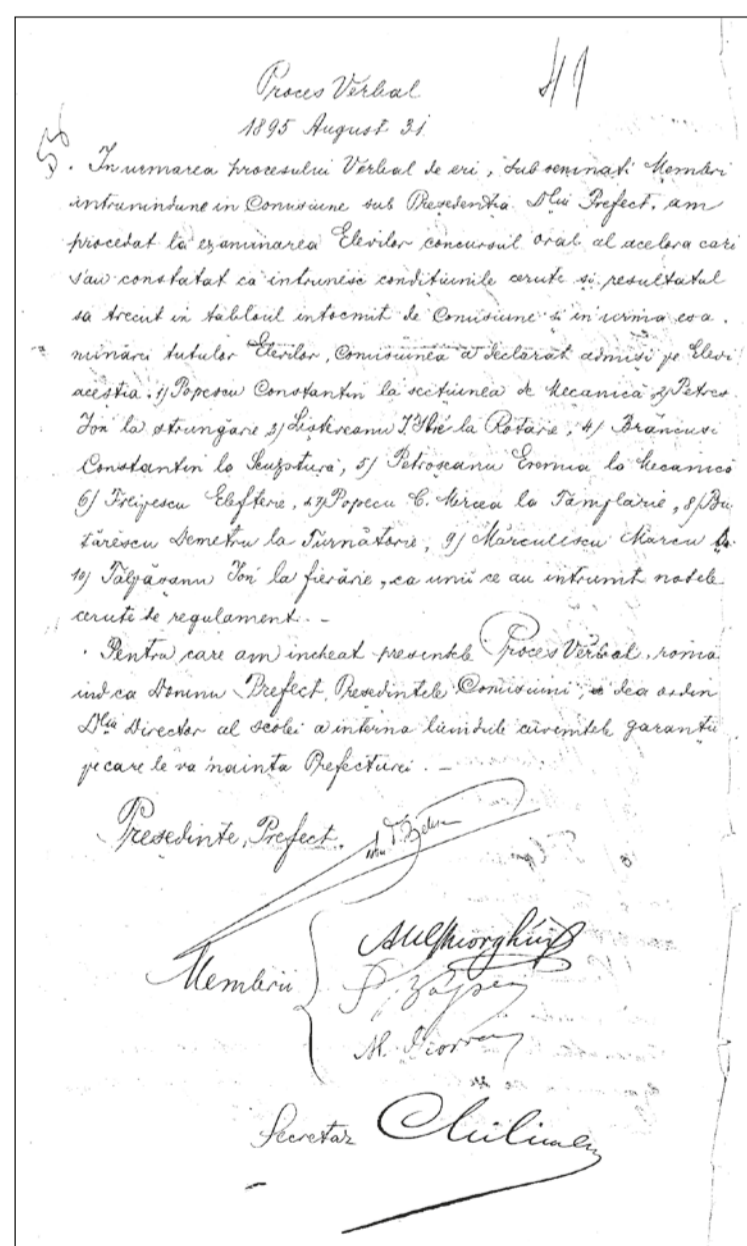 Proces Verbal
1895 August 31
In urmarea procesului Verbal de eri, subsemnati Membri
intrunindune in Comisiune sub Presedentia Dlui Prefect, am
procedat la examinarea Elevilor concursul oral al acelora cari
s'au constatat ca intrunesc conditiunile cerute si resultatul
sa trecut in tabloul intocmit de Comisiune si in urma esa
minărei tutulor Elevilor, Comisiunea a declarat admisi pe Elevi
acestia. 1) Popescu Constantin la sectiunea de Mecanică 2) Petres
Ion la strungărie 3) la Rotărie, 4) Brâncusi
Constantin la Sculptură, 5) Petroseanu Eremia la Mecanică
6) Elefterie, 7) Popecu C. Mircea la Tâmplărie, 8) Bu
tărescu Demetru la Turnătorie, 9) Mărculescu Marcu
10) Tâlpăsanu Ion la fierărie, ca unii ce au intrunit notele
cerute de regulament. -
Pentru care am incheat presentele Proces Verbal, roma
ind ca Domnu Prefect, Presedintele Comisiuni, dea ordin
Dlui Director al scolei a interna cuvintele garantii
pe care le va 'nainta Prefecturei. -
Presedinte, Prefect.
Membrii
Secretar